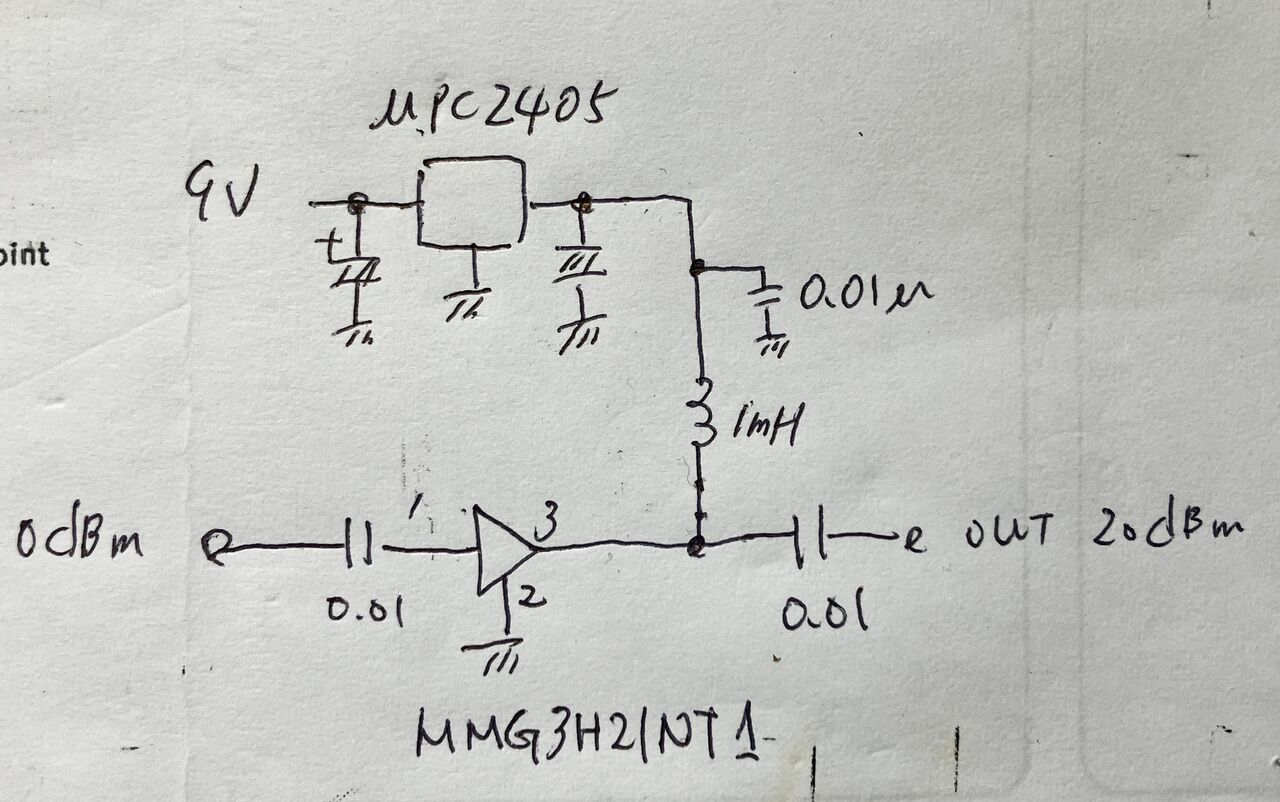 μPC2405
9V
oint
+
0.01μ
1mH
0dBm
1
3
OUT 20dBm
2
0.01
0.01
MMG3H21NT1